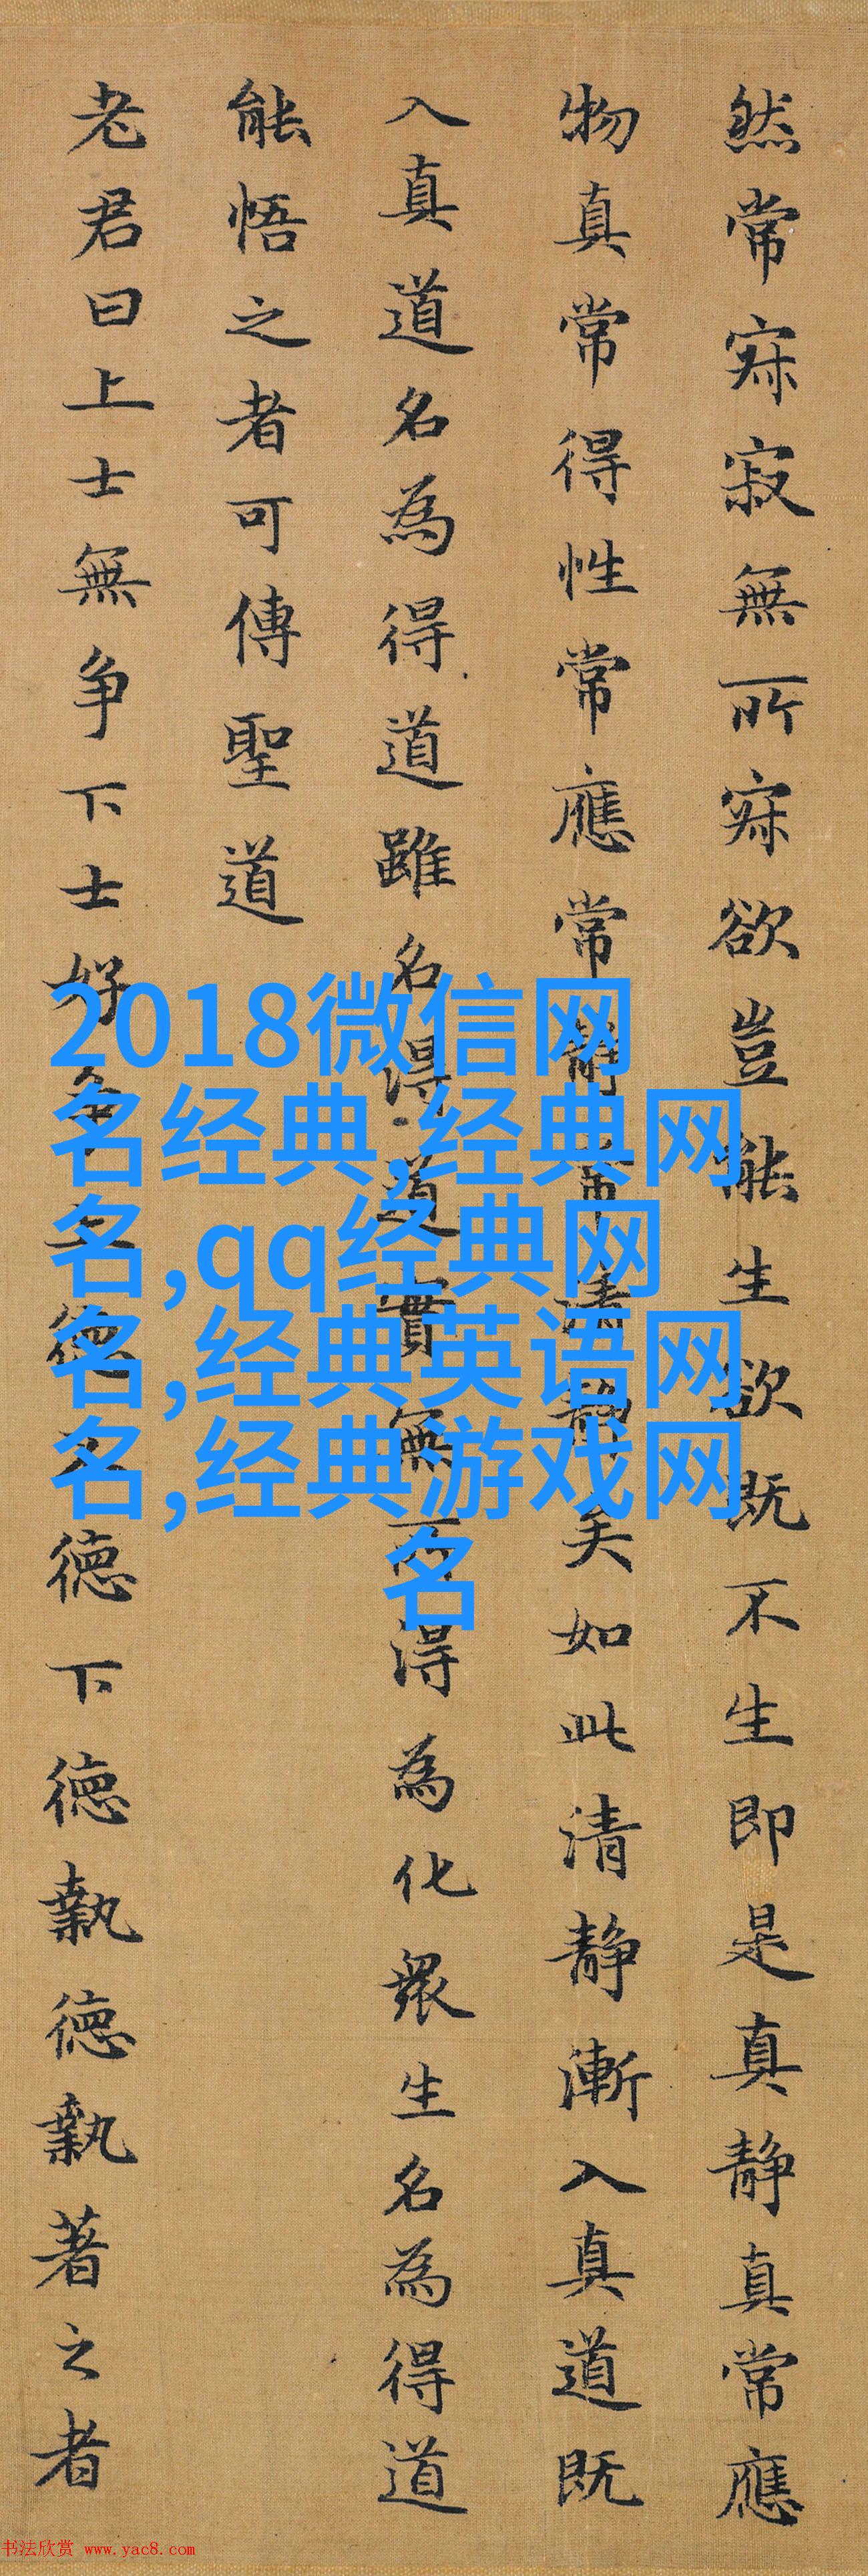 然常寂寂無所寂欲豈能生欲既不生即是真静真常應
物真常得性常應常静常清静矣如此清静漸入真道既
入真道名為得道雖名得道實無所得為化衆生名為得道
能悟之者可傳聖道
老君曰上士無争下士好争上德不德下德執德執著之者
2018微信网
名经典,经典网
名,qq经典网
名,经典英语网
名,经典游戏网
名
书法欣赏 www.yac8.com